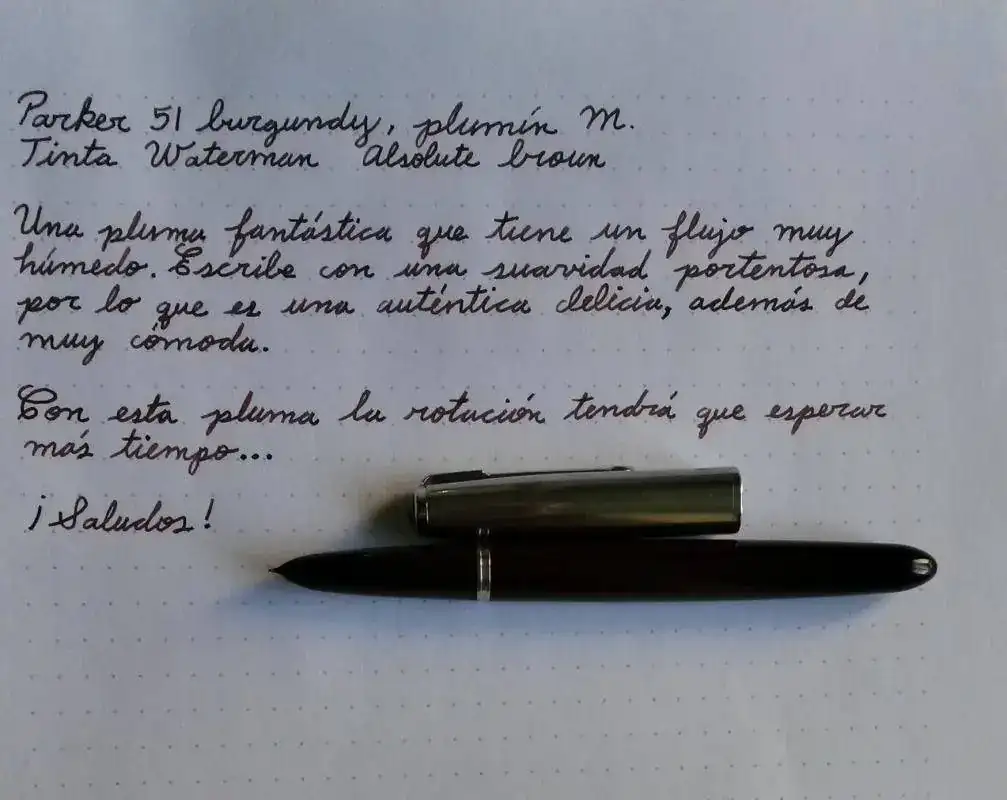 Parker 51 burgundy, plumín M.
Tinta Waterman Absolute brown
Una pluma fantástica que tiene un flujo muy
húmedo. Escribe con una suavidad portentosa,
por lo que es una auténtica delicia, además de
muy cómoda.
Con esta pluma la rotación tendrá que esperar
más tiempo...
¡Saludos!